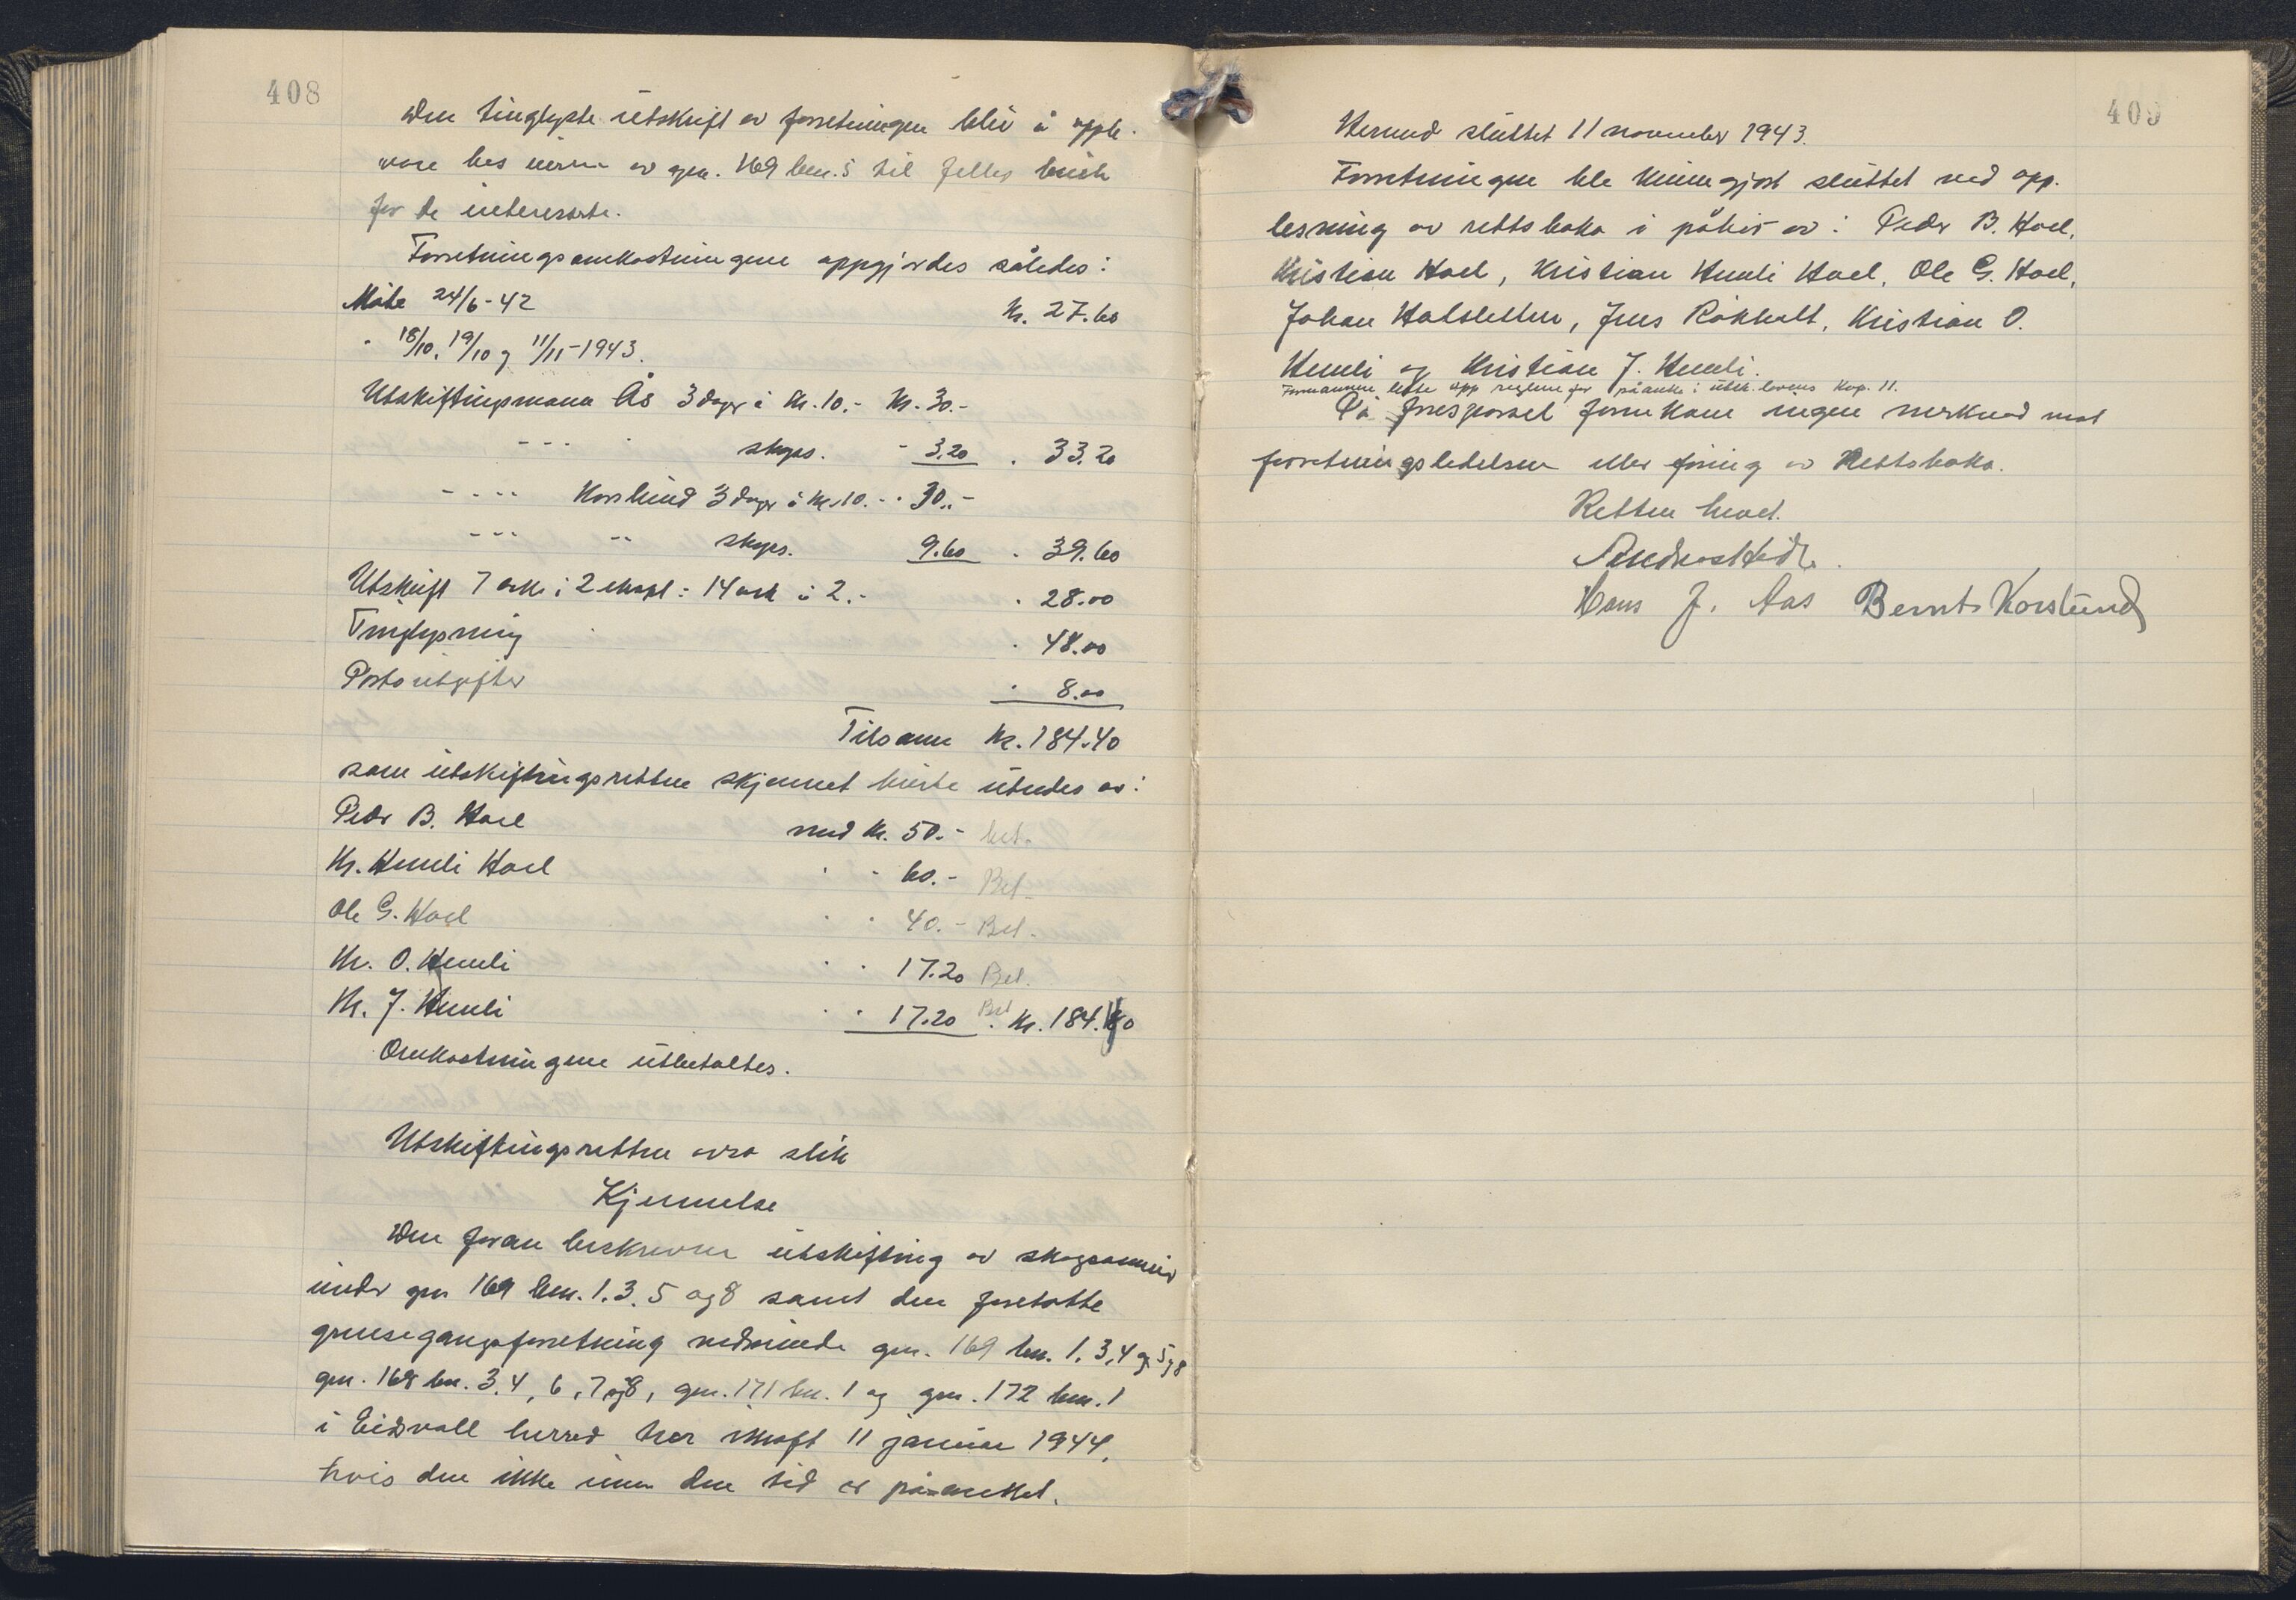 408
Den tinglyste utskrift av forretningen blir å oppbe-
vare hos eieren av gnr. 169 bnr. 5 til felles bruk
for de interesserte.
Forretningsomkostningene oppgjordes således:
Møte 24/6-42 kr. 27.60
" 18/10, 19/10 og 11/11-1943.
Utskiftningsmann Ås 3 dager à kr. 10.- kr. 30.-
--- " skyss. - 3.20 " 33.20
---- Korslund 3 dager à kr. 10.- " 30.-
--- -- skyss. 9.60 " 39.60
Utskrift 7 ark i 2 ekspl = 14 ark à 2.- " 28.00
Tinglysning " 48.00
Porto utgifter " 8.00
Tilsamm kr. 184.40
som utskiftningsretten skjønnet burde utredes av:
Peder B. Hoel med kr. 50.- bet.
Kr. Hemli Hoel " " 60.- Bet.
Ole G. Hoel " " 40.- Bet.
Kr. O. Hemli " " 17.20 Bet.
Kr. J. Hemli " " 17.20 Bet. kr. 184.40
Omkostningene utbetaltes.
Utskiftningsretten avsa slik
Kjennelse
Den foran beskrevne utskiftning av skogsameie
under gnr 169 bnr. 1. 3. 5 og 8 samt den foretatte
grensegangsforretning vedrørende gnr. 169 bnr. 1. 3, 4 og 5 og 8
gnr. 168 bnr. 3. 4, 6, 7 og 8, gnr. 171 bnr. 1 og gnr. 172 bnr. 1
i Eidsvoll herred har rkraft 11 januar 1944,
hvis den ikke innen den tid er påanket.
409
Hermed sluttet 11 november 1943.
Forretningen ble kunngjort sluttet ved opp-
lesning av rettsboka i påhør av: Peder B. Hoel,
Kristian Hoel, Kristian Hemli Hoel, Ole G. Hoel,
Johan Halsletten, Jens Råkholt, Kristian O.
Hemli og Kristian J. Hemli.
Formannen leste opp reglene for påanke i utsk. lovens kap. 11.
På forespørsel fremkom ingen merknad mot
forretningsledelsen eller føring av Rettsboka.
Retten hevet.
Hans J. Aas Bernt Korslund